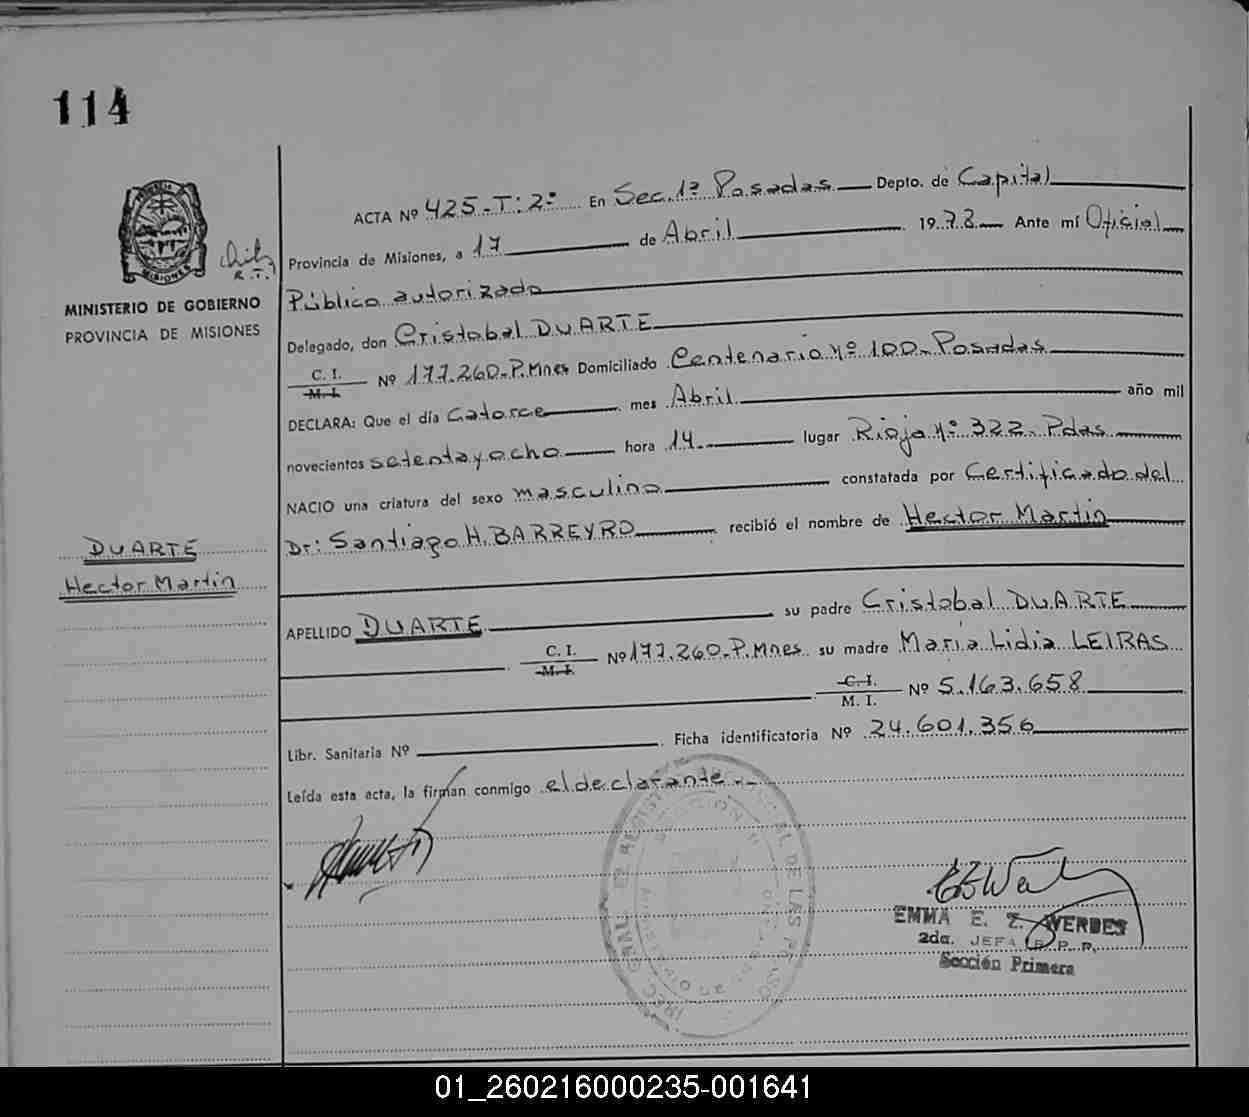 114
MINISTERIO DE GOBIERNO
PROVINCIA DE MISIONES
R.T.
ACTA Nº 425-T:2º En Sec. 1ª Posadas Depto. de Capital
Provincia de Misiones, a 17 de Abril 1978 Ante mí Oficial
Público autorizado
Delegado, don Cristobal DUARTE
C. I.
M. I. Nº 177.260-P.Mnes Domiciliado Centenario Nº 100-Posadas
DECLARA: Que el día Catorce mes Abril año mil
novecientos setenta y ocho hora 14 lugar Rioja Nº 322-Pdas
NACIO una criatura del sexo masculino constatada por Certificado del
Dr: Santiago H. BARREYRO recibió el nombre de Hector Martin
DUARTE
Hector Martin
APELLIDO DUARTE su padre Cristobal DUARTE
C. I.
M. I. Nº 177.260-P.Mnes su madre María Lidia LEIRAS
C. I.
M. I. Nº 5.163.658
Libr. Sanitaria Nº Ficha identificatoria Nº 24.601.356
Leída esta acta, la firman conmigo el declarante.-
EMMA E. Z. WERDES
2da. JEFA R.P.P.
Sección Primera
01_260216000235-001641